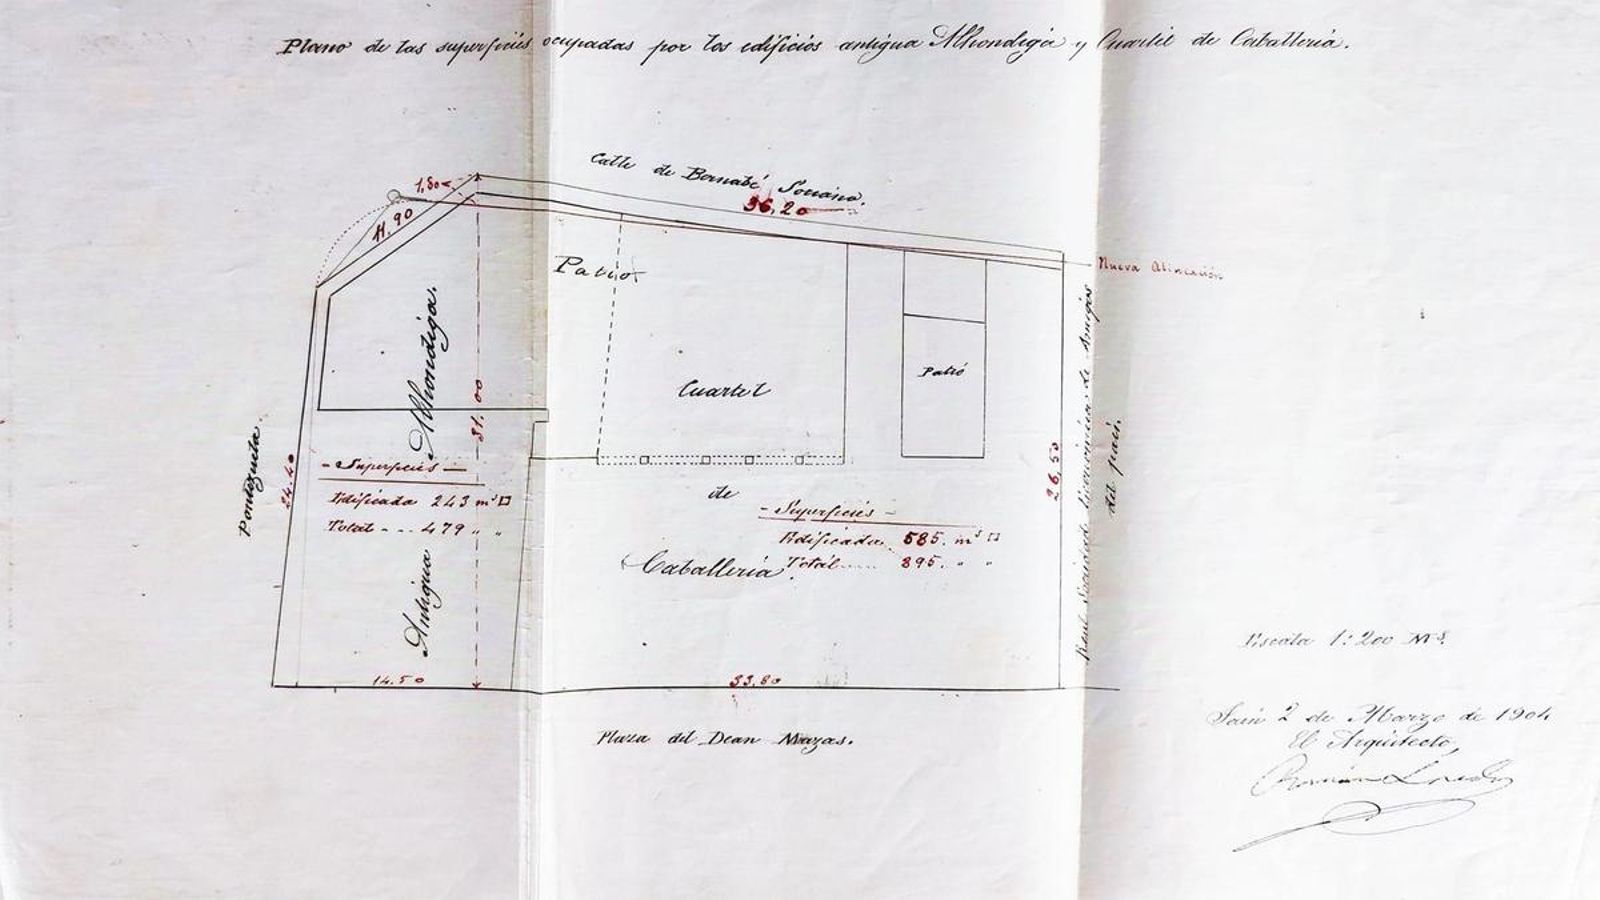 Plano de las superficies ocupadas por los edificios antigua Alhondiga y Cuartel de Caballeria.
Calle de Bernabé Soriano.
36,20
1,80
11.90
Nueva Alineación
Patio
Antigua Alhondiga.
31.00
Cuartel
Patio
Pontezuela.
24.40
26,50
Real Sociedad Económica de Amigos
del país.
- Superficies -
Edificada 243 m² □
Total - - - 479 " "
de
- Superficies -
Edificada. 585. m² □
Total ..... 895. " "
Caballeria.
Escala 1:200 Ms.
14.50
33,80
Jaén 2 de Marzo de 1904
El Arquitecto,
Plaza del Dean Mazas.